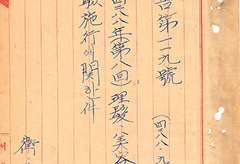 告第一一九號
(四二八八.九
四二八八年(第八回)理髮美容
取施行에關한件
衛